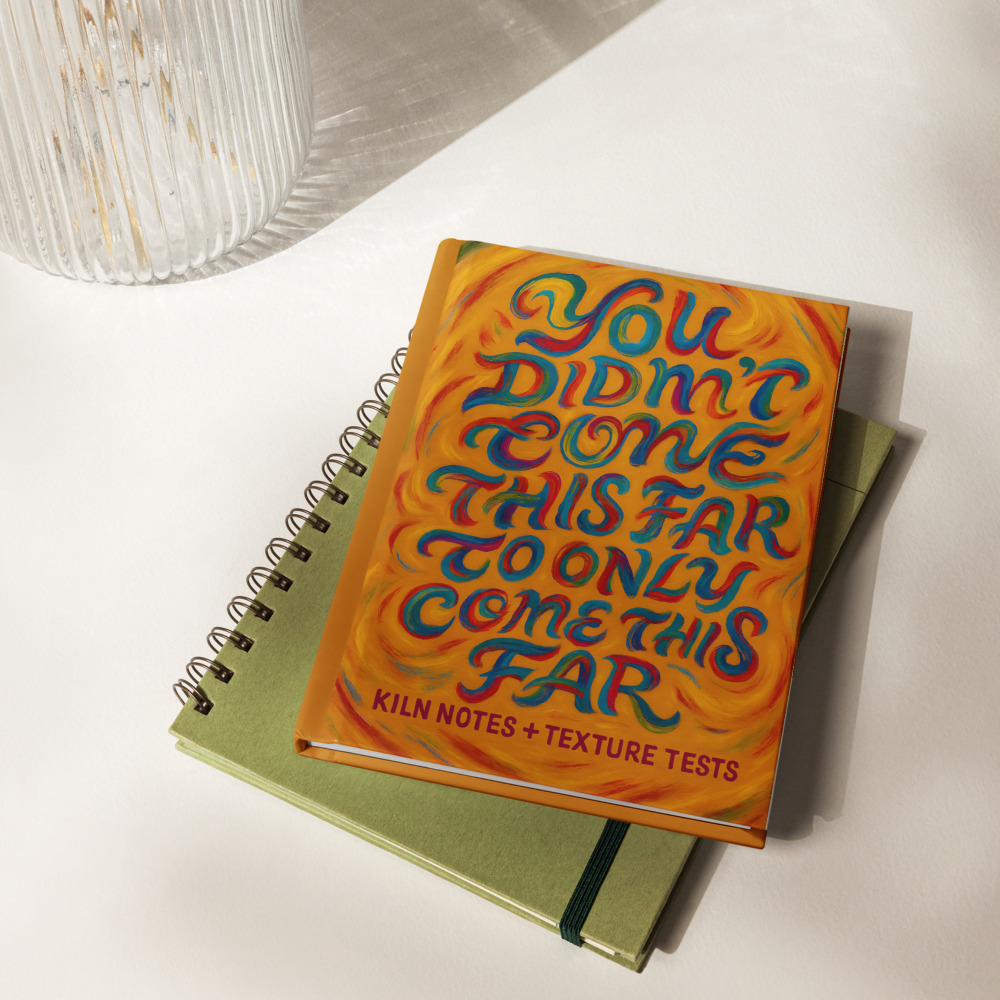 YOU
DIDN'T
COME
THIS FAR
TO ONLY
COME THIS
FAR
KILN NOTES + TEXTURE TESTS